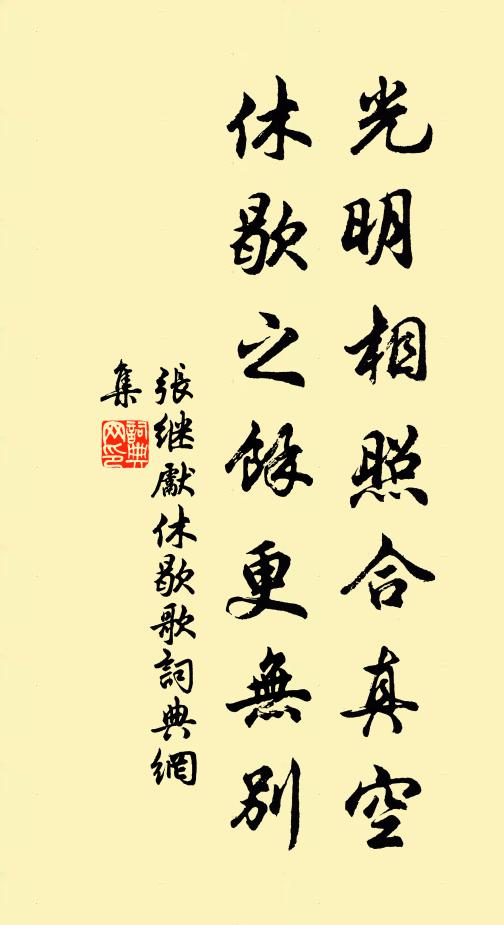 光明相照合真空
休歇之餘更無別
張继獻休歇歌詞典網
集
詞典网印